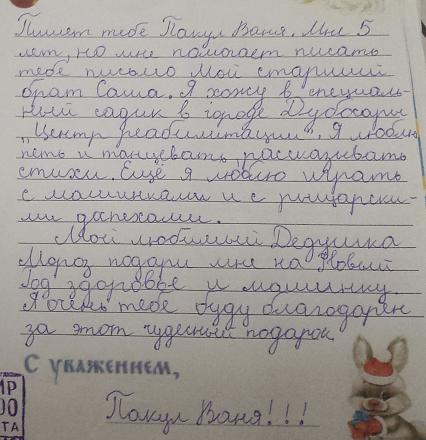 Пишет тебе Пакул Ваня. Мне 5
лет, но мне помогает писать
тебе письмо Мой старший
брат Саша. Я хожу в специаль-
ный садик в городе Дубоссары
„Центр реабилитации". Я люблю
петь и танцевать, рассказывать
стихи. Ещё я люблю играть
с машинками и с рыцарски-
ми доспехами.
Мой любимый Дедушка
Мороз подари мне на Новый
Год здоровье и машинку.
Я очень тебе буду благодарен
за этот чудесный подарок.
С уважением,
Пакул Ваня!!!
ИР
00
ТА